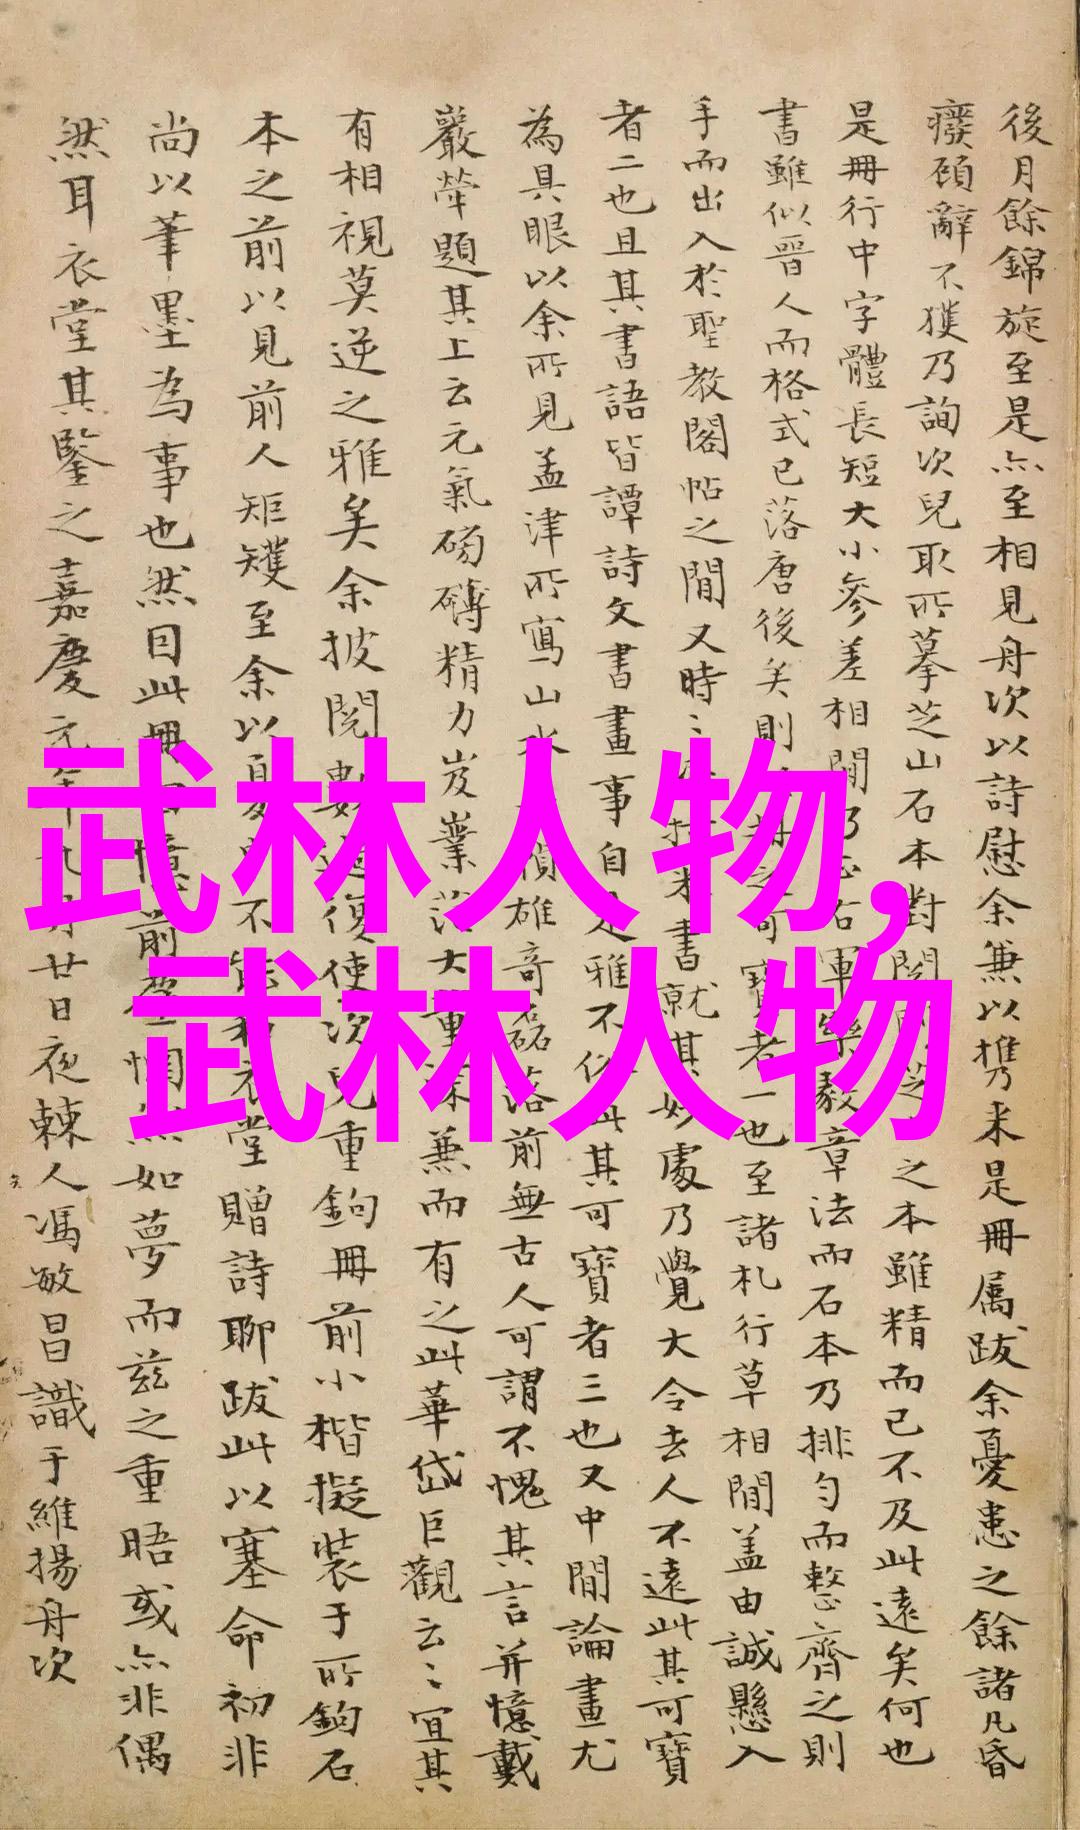 後月餘錦旋至是亦至相見舟次以詩慰余兼以攜来是冊屬跋余憂患之餘諸凡昏
癈頋辭不獲乃詢次兒取所摹芝山石本對閱芝之本雖精而已不及此遠矣何也
是冊行中字體長短大小參差相間乃右軍樂毅章法而石本乃排勻而整齊之則
書雖似晉人而格式已落唐後矣則可寶者一也至諸札行草相間盖由誠懸入
手而出入於聖教閣帖之間又時書就其妙處乃覺大令去人不遠此其可寶
者二也且其書語皆譚詩文書畫事自是雅不俗此其可寶者三也又中間論畫尤
為具眼以余所見孟津所寫山水雄奇磊落前無古人可謂不愧其言并憶戴
巖犖題其上云元氣磅礴精力岌嶪大兼而有之此華岱巨觀云〻宜其
有相視莫逆之雅矣余披閱數過復使次兒重鉤冊前小楷擬裝于所鉤石
本之前以見前人矩矱至余以夏不能和衣堂贈詩聊跋此以塞命初非
尚以筆墨為事也然因此冊憶前塵惘然如夢而茲之重晤或亦非偶
然耳衣堂其鑒之嘉慶元年九月廿日夜棘人馮敏昌識于維揚舟次
武林人物,
武林人物